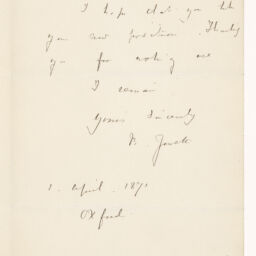 I hope that you like
your new position. Thanking
you for writing me
I remain
yours sincerely
B. Jowett
1. April. 1871
Oxford.